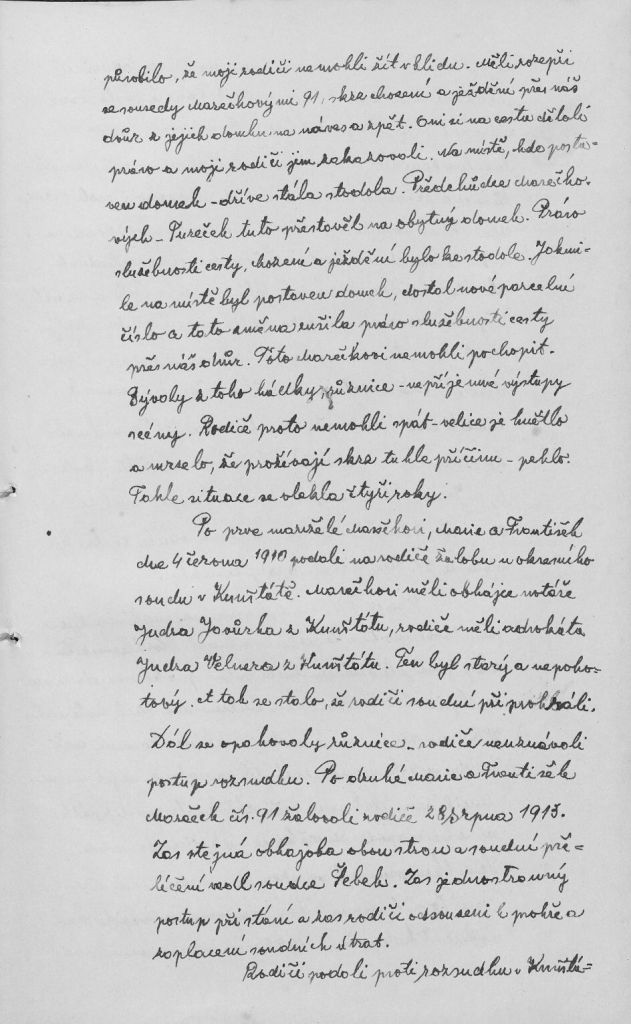 působilo, že moji rodiči nemohli žít v klidu. Měli rozepři
se sousedy Marečkovými 91, skrz chození a ježdění přes náš
dvůr z jejich domku na náves a zpět. Oni si na cestu dělali
právo a moji rodiči jim zakazovali. Na místě, kde posta-
ven domek - dříve stála stodola. Předchůdce Marečko-
vých - Tureček tuto přestavěl na obytný domek. Právo
služebnosti cesty, chození a ježdění bylo ke stodole. Jakmi-
le na místě byl postaven domek, dostal nové parcelní
číslo a tato změna rušila právo služebnosti cesty
přes náš dvůr. Toto Marečkovi nemohli pochopit.
Bývaly z toho hádky, různice - nepříjemné výstupy
scény. Rodiče proto nemohli spát - velice je hnětlo
a mrzelo, že prožívají skrz tuhle příčinu - peklo.
Tahle situace se vlekla čtyři roky.
Po prve manželé Marečkovi, Marie a František
dne 4 června 1910 podali na rodiče žalobu u okresního
soudu v Kunštátě. Marečkovi měli obhájce notáře
Judra Javůrka z Kunštátu, rodiče měli advokáta
Judra Velnera z Kunštátu. Ten byl starý a nepoho-
tový. A tak se stalo, že rodiči soudní při prohráli.
Dál se opakovaly různice - rodiče neuznávali
postup rozsudku. Po druhé Marie a František
Mareček čís. 91 žalovali rodiče 28 srpna 1913.
Zas stejná obhajoba obou stran a soudní pře-
líčení vedl soudce Šebek. Zas jednostranný
postup při stání a zas rodiči odsouzeni k pokře a
zaplacení soudních útrat.
Rodiči podali proti rozsudku v Kunštá-